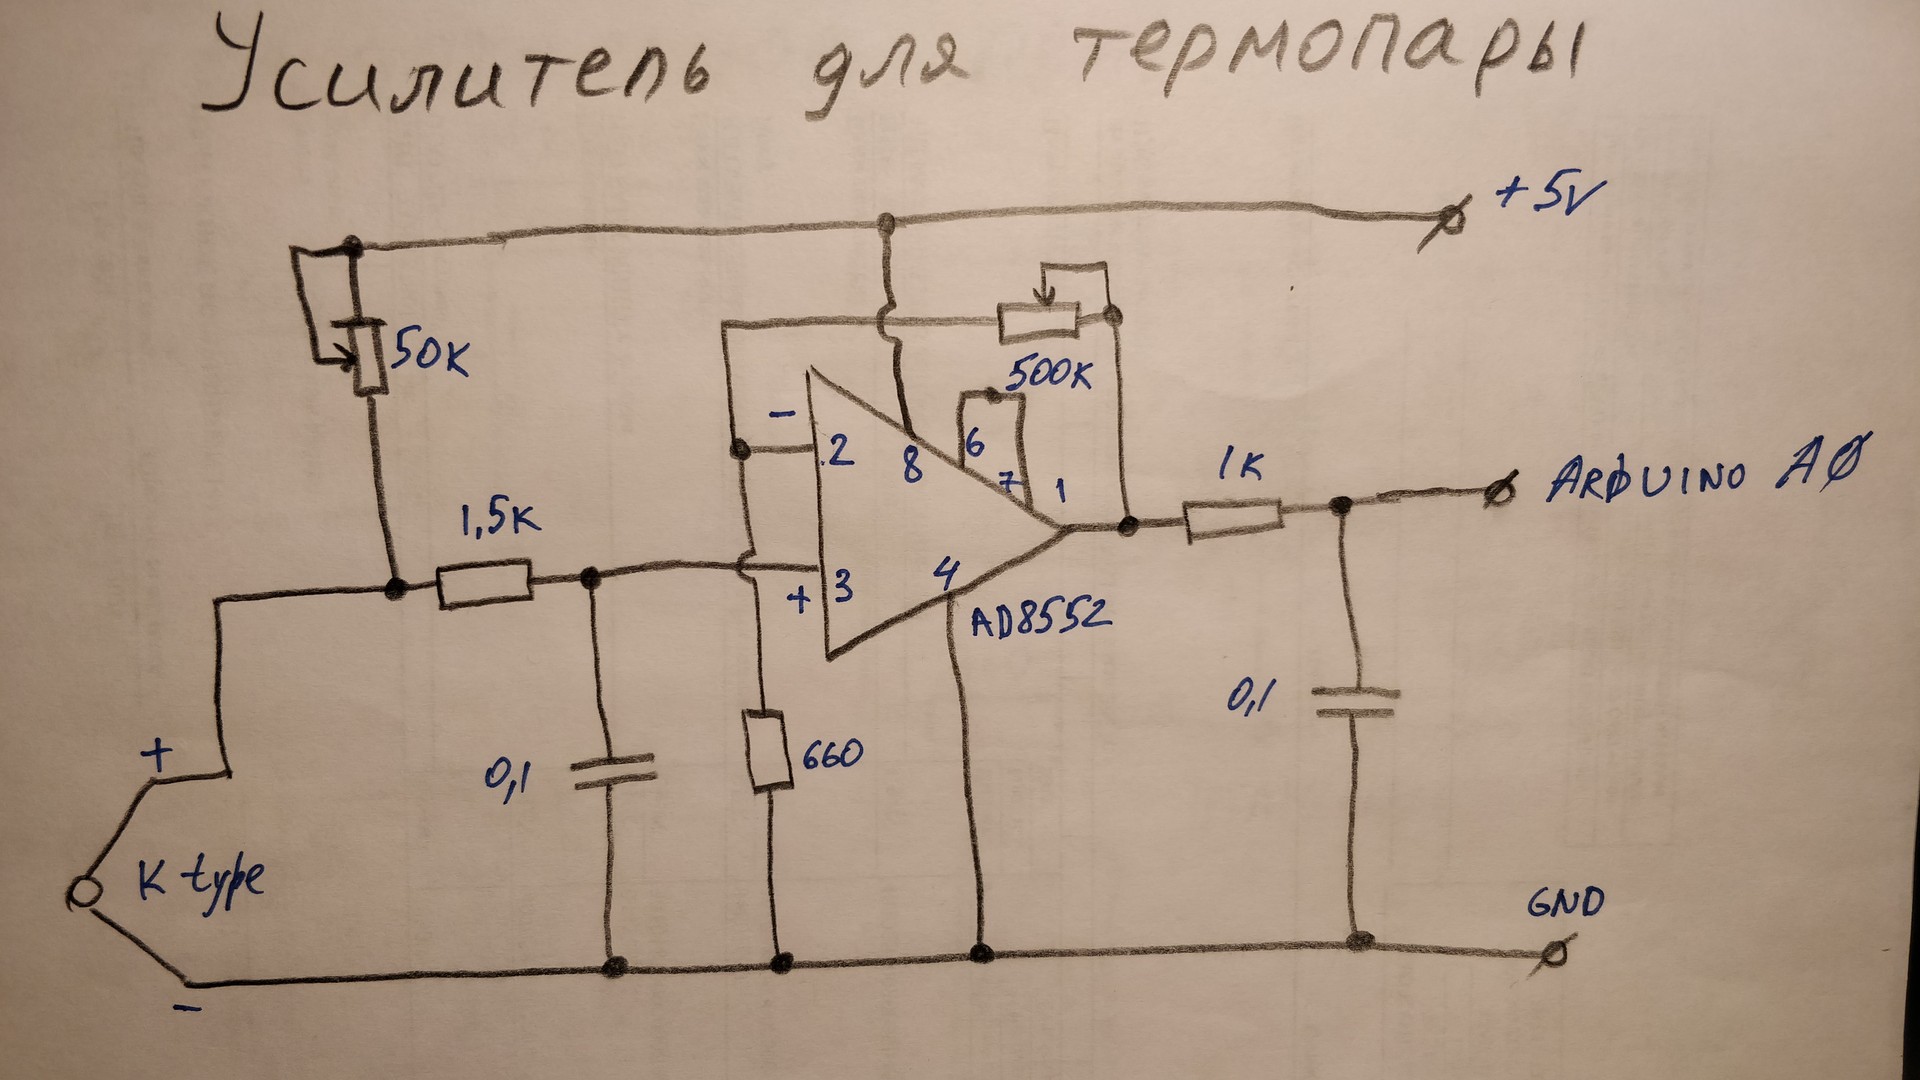 Усилитель для термопары
+5V
50K
500K
-
2
8
6
7
1
1K
ARDUINO AØ
1,5K
+
3
4
AD8552
0,1
+
0,1
660
K type
GND
-